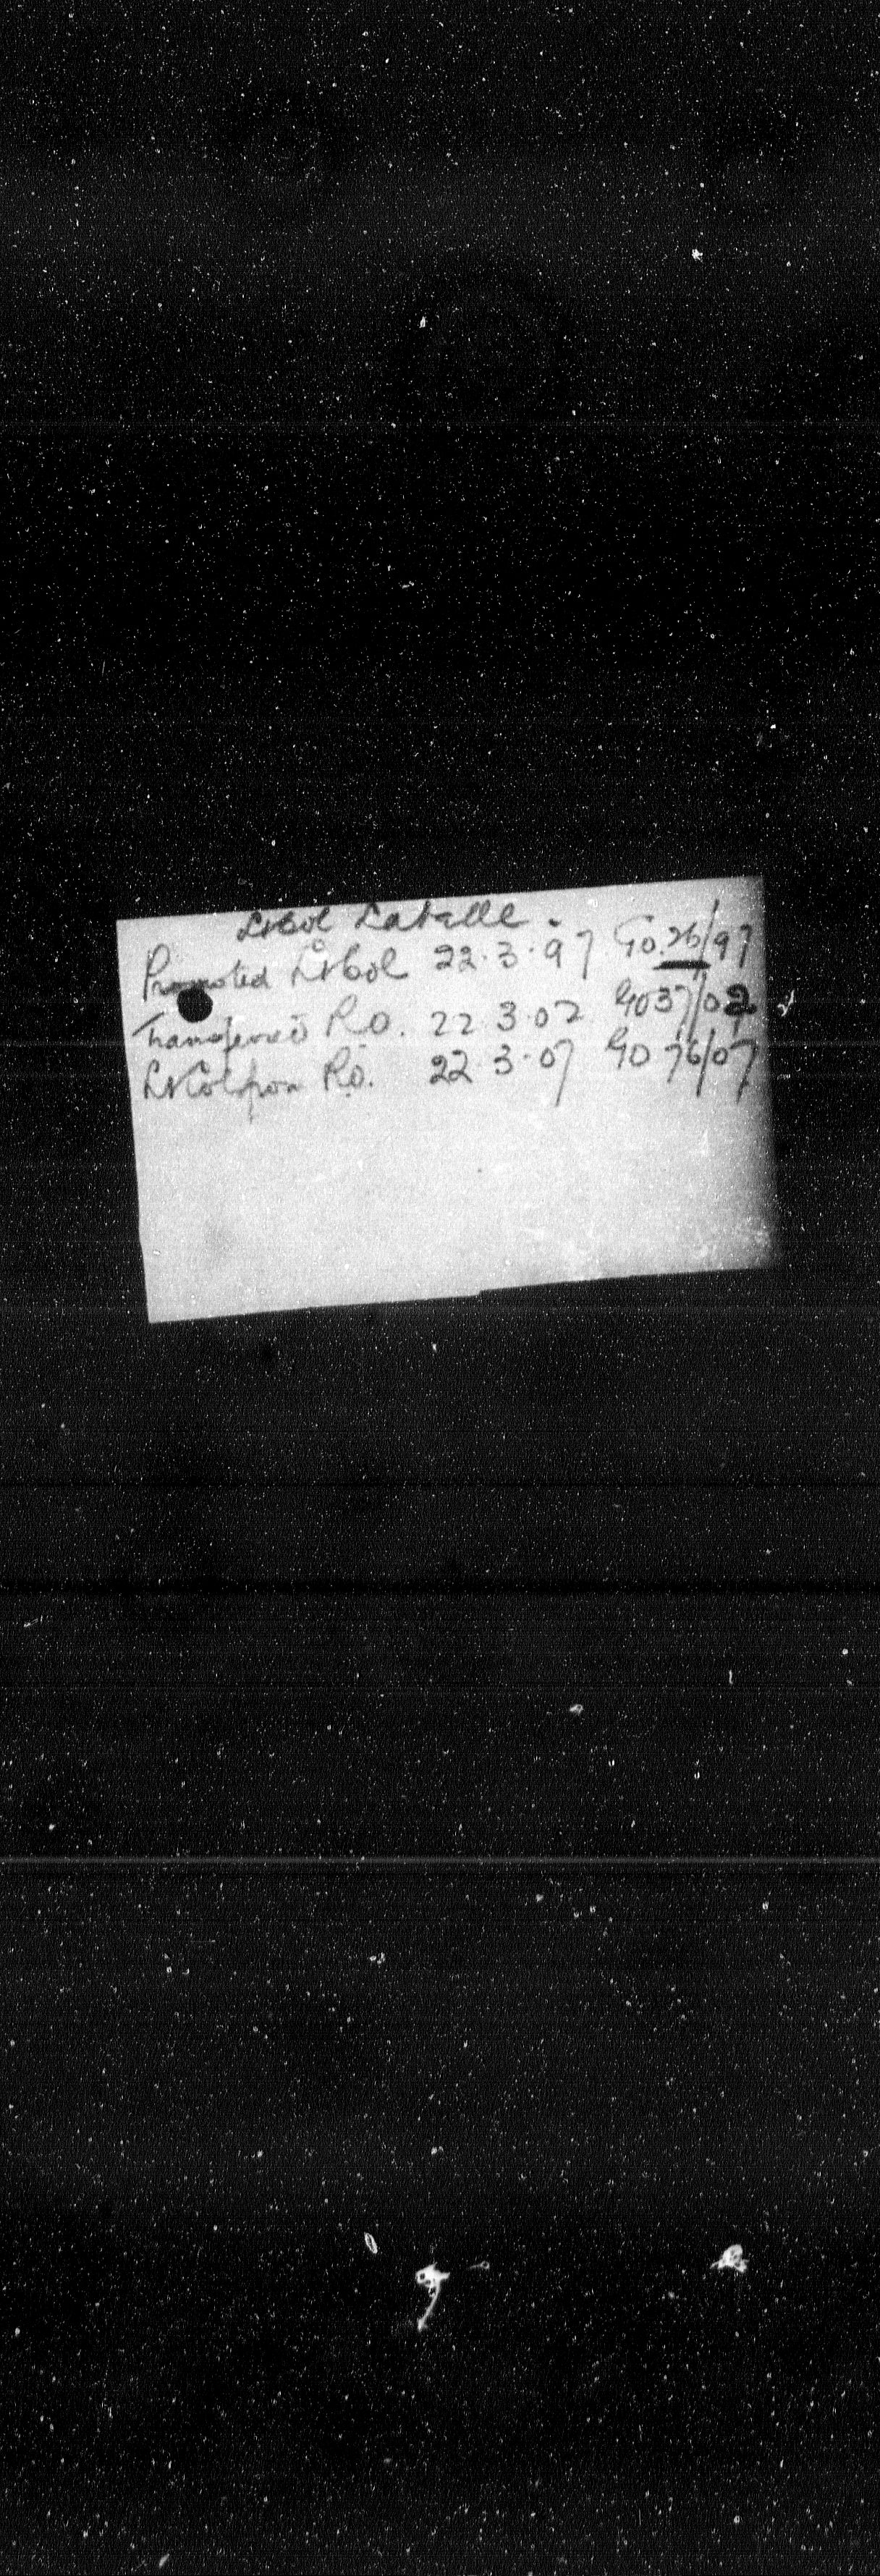 Lt Col Labelle.
Promoted Lt Col 22.3.97 GO.26/97
Transferred R.O. 22 3.02 GO37/02
Lt Col from R.O. 22.3.07 GO 76/07